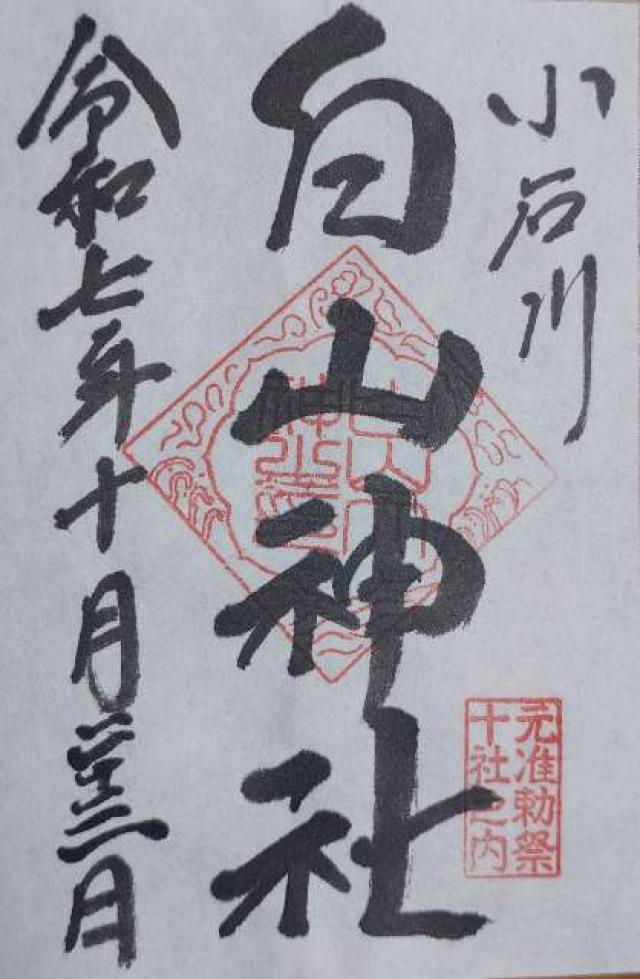 小石川
白山神社
元准勅祭
十社之内
令和七年十月二十三日